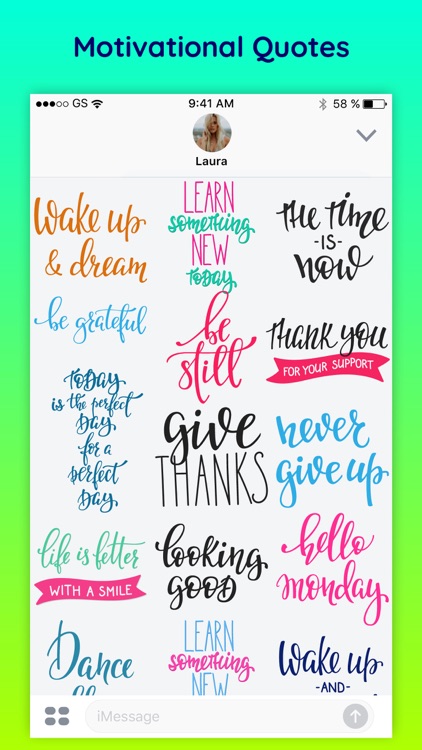 Motivational Quotes
●●●○○ GS
9:41 AM
58 %
Laura
Wake up
& dream
LEARN
something
NEW
today
the time
-IS-
now
be grateful
be
still
thank you
FOR YOUR SUPPORT
TODAY
is the perfect
Day
for a
perfect
Day
give
THANKS
never
give up
life is better
WITH A SMILE
looking
good
hello
monday
Dance
LEARN
something
NEW
Wake up
-AND-
iMessage